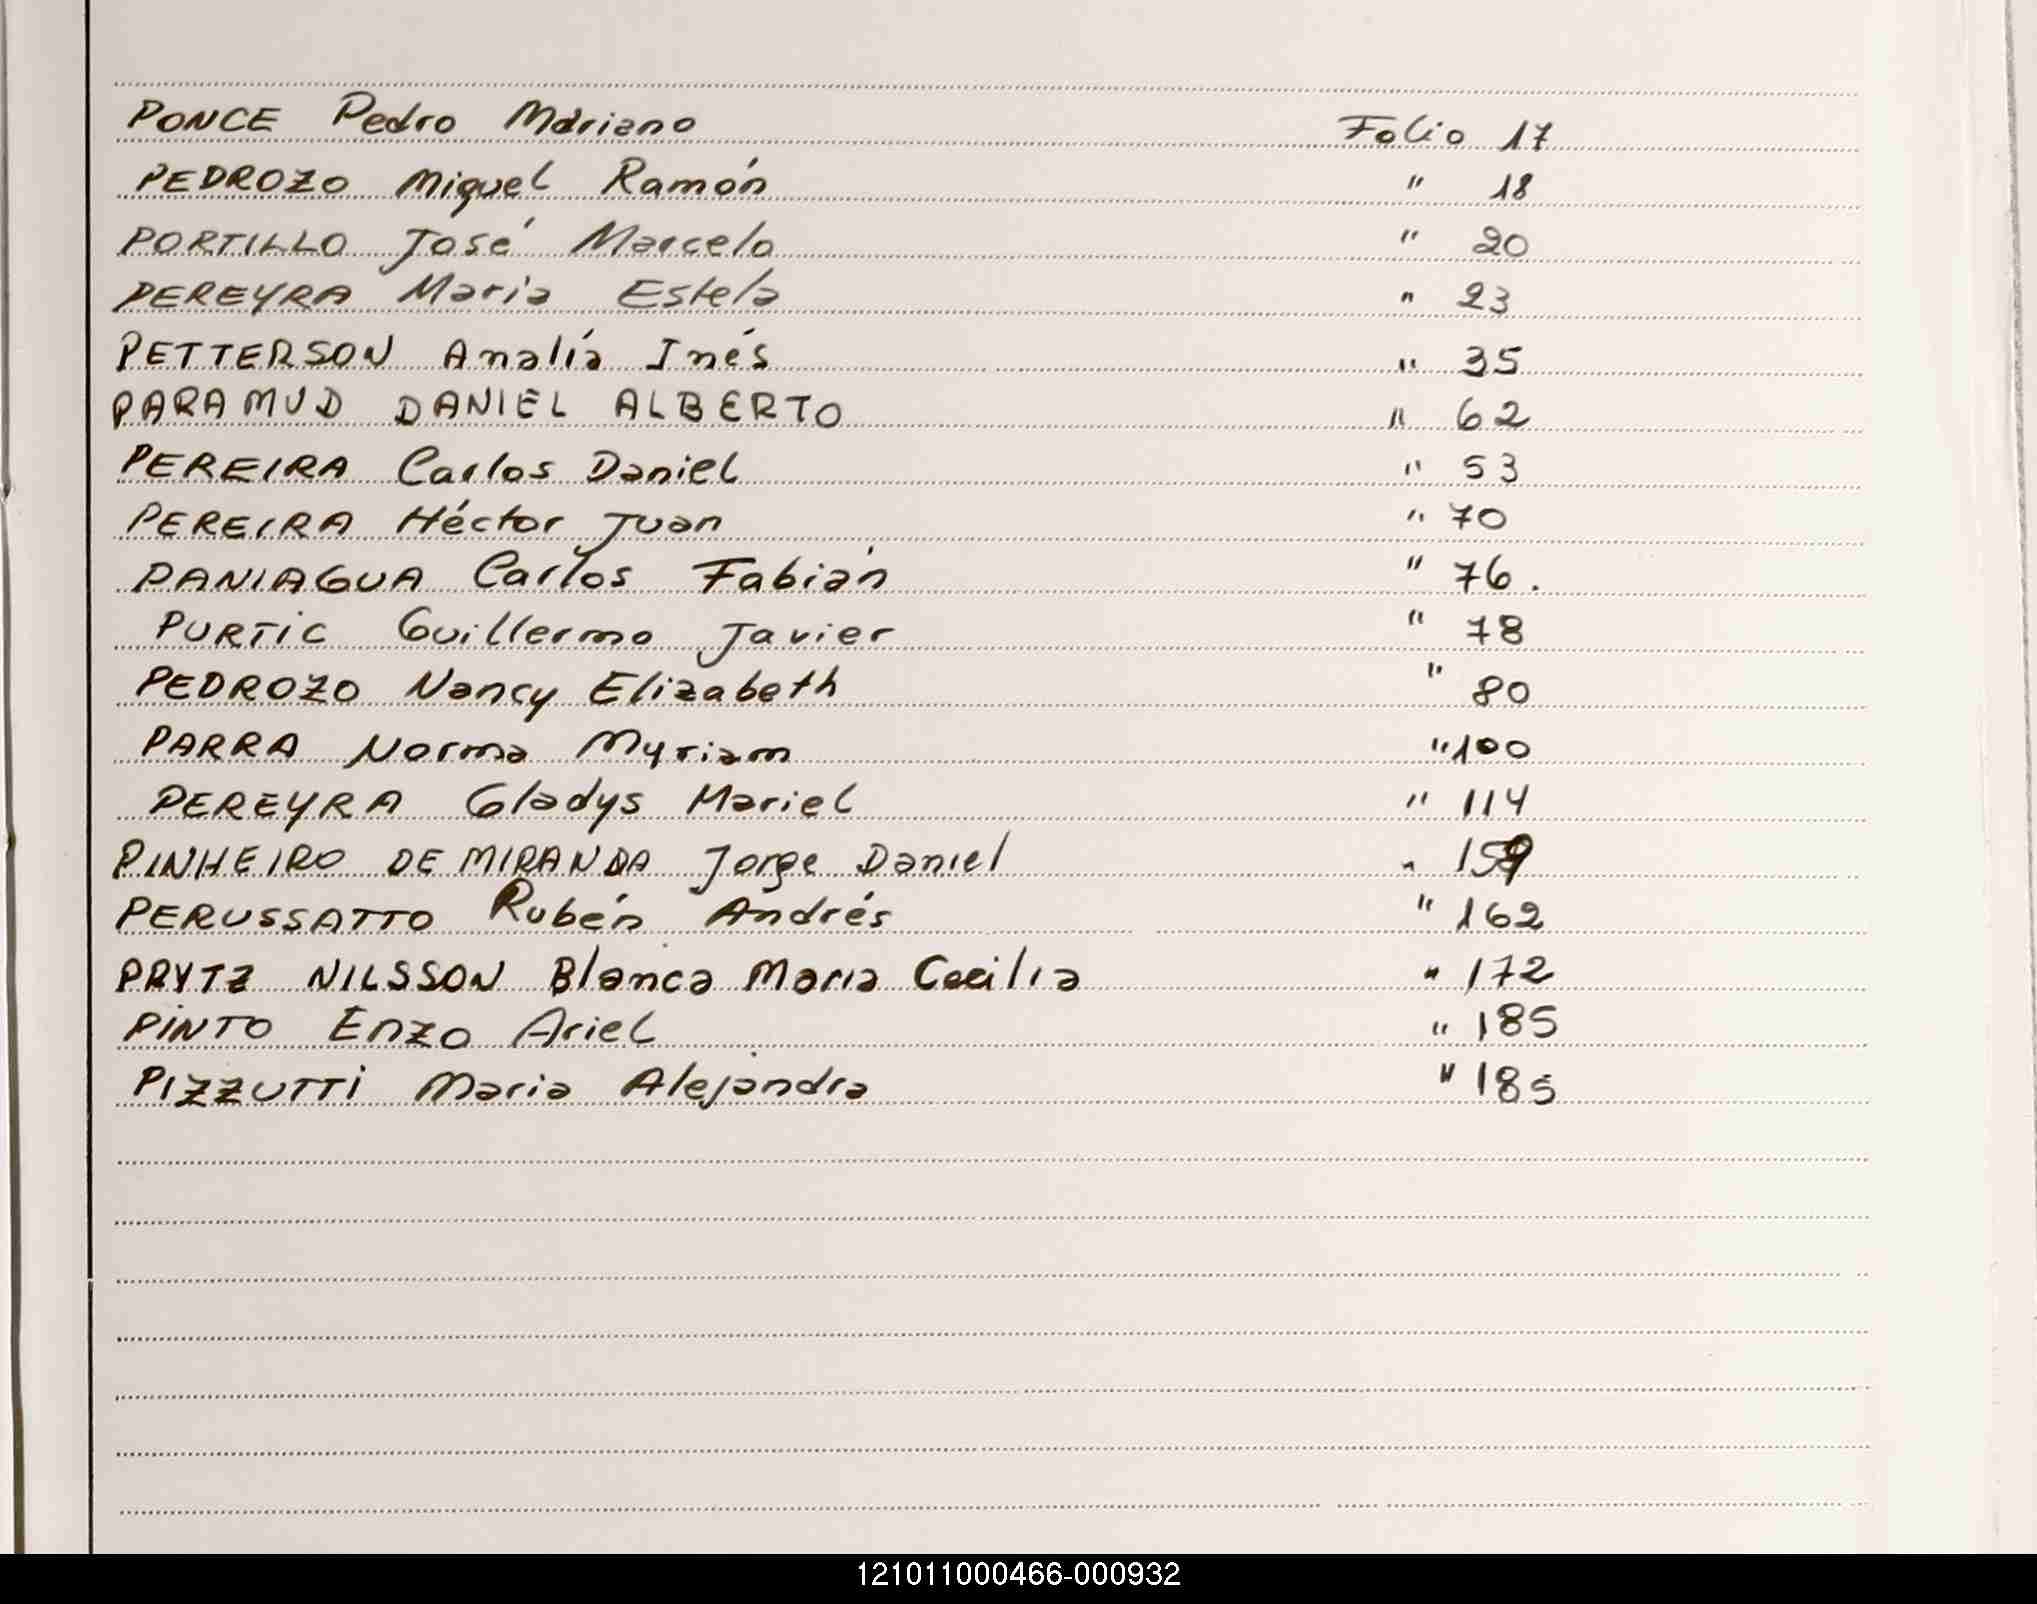 PONCE Pedro Mariano Folio 17
PEDROZO Miguel Ramón " 18
PORTILLO José Marcelo " 20
PEREYRA Maria Estela " 23
PETTERSON Analía Inés " 35
PARAMUD DANIEL ALBERTO " 62
PEREIRA Carlos Daniel " 53
PEREIRA Héctor Juan " 70
PANIAGUA Carlos Fabián " 76.
PURTIC Guillermo Javier " 78
PEDROZO Nancy Elizabeth " 80
PARRA Norma Myriam " 100
PEREYRA Gladys Mariel " 114
PINHEIRO DE MIRANDA Jorge Daniel " 159
PERUSSATTO Rubén Andrés " 162
PRYTZ NILSSON Blanca Maria Cecilia " 172
PINTO Enzo Ariel " 185
PIZZUTTI Maria Alejandra " 185
121011000466-000932